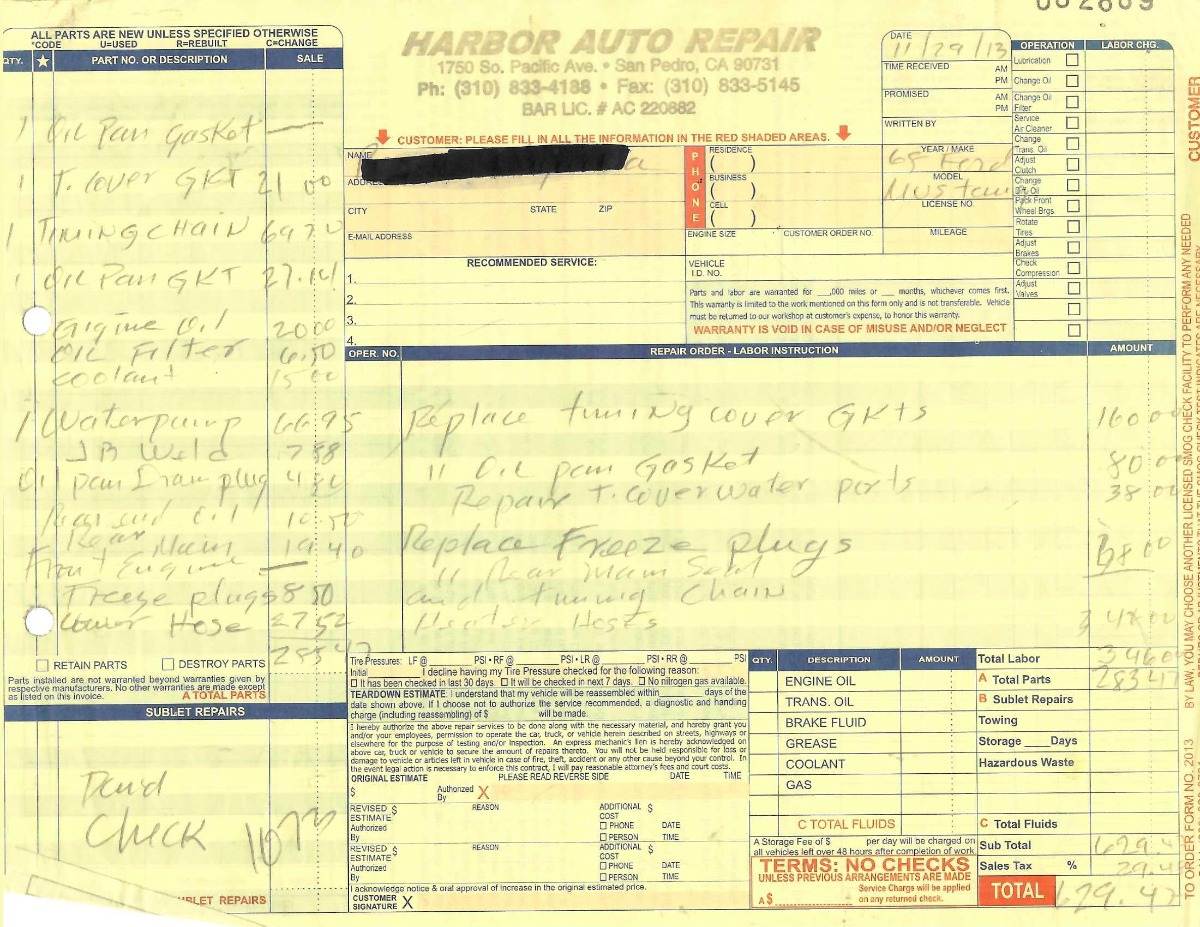 002609
ALL PARTS ARE NEW UNLESS SPECIFIED OTHERWISE
*CODE U=USED R=REBUILT C=CHANGE
QTY. ★ PART NO. OR DESCRIPTION SALE
1 Oil Pan Gasket —
1 T. Cover GKT 21 00
1 TIMING CHAIN
1 Oil Pan GKT
Engine Oil 20 00
Oil Filter 6.50
coolant 15 00
1 Waterpump 66 95
JB Weld 7 88
Oil pan Drain plug
Rear Main 19.40
Front Engine —
Freeze plugs 8 50
Lower Hose 27.52
283 47
RETAIN PARTS DESTROY PARTS
Parts installed are not warranted beyond warranties given by
respective manufacturers. No other warranties are made except
as listed on this invoice. A TOTAL PARTS
SUBLET REPAIRS
Paid
Check 1073
SUBLET REPAIRS
HARBOR AUTO REPAIR
1750 So. Pacific Ave. • San Pedro, CA 90731
Ph: (310) 833-4188 • Fax: (310) 833-5145
BAR LIC. # AC 220882
CUSTOMER: PLEASE FILL IN ALL THE INFORMATION IN THE RED SHADED AREAS.
NAME
ADDRESS
CITY STATE ZIP
E-MAIL ADDRESS
PHONE
RESIDENCE ( )
BUSINESS ( )
CELL ( )
DATE 11/29/13
TIME RECEIVED AM PM
PROMISED AM PM
WRITTEN BY
YEAR / MAKE 65 Ford
MODEL Mustang
LICENSE NO.
ENGINE SIZE CUSTOMER ORDER NO. MILEAGE
VEHICLE I.D. NO.
OPERATION LABOR CHG.
Lubrication
Change Oil
Change Oil Filter
Service Air Cleaner
Change Trans. Oil
Adjust Clutch
Change Diff Oil
Pack Front Wheel Brgs
Rotate Tires
Adjust Brakes
Check Compression
Adjust Valves
RECOMMENDED SERVICE:
1.
2.
3.
4.
Parts and labor are warranted for ___,000 miles or ___ months, whichever comes first.
This warranty is limited to the work mentioned on this form only and is not transferable. Vehicle
must be returned to our workshop at customer's expense, to honor this warranty.
WARRANTY IS VOID IN CASE OF MISUSE AND/OR NEGLECT
OPER. NO. REPAIR ORDER - LABOR INSTRUCTION AMOUNT
Replace timing cover GKTs 160 00
" Oil pan Gasket 80 00
Repair T. Cover Water ports 38 00
Replace Freeze plugs
" Rear Main Seal
and timing Chain
Heater Hoses
Tire Pressures: LF @ PSI • RF @ PSI • LR @ PSI • RR @ PSI
Initial______I decline having my Tire Pressure checked for the following reason:
It has been checked in last 30 days. It will be checked in next 7 days. No nitrogen gas available.
TEARDOWN ESTIMATE: I understand that my vehicle will be reassembled within______ days of the
date shown above. If I choose not to authorize the service recommended, a diagnostic and handing
charge (including reassembling) of $ ______ will be made.
I hereby authorize the above repair services to be done along with the necessary material, and hereby grant you
and/or your employees, permission to operate the car, truck, or vehicle herein described on streets, highways or
elsewhere for the purpose of testing and/or inspection. An express mechanic's lien is hereby acknowledged on
above car, truck or vehicle to secure the amount of repairs thereto. You will not be held responsible for loss or
damage to vehicle or articles left in vehicle in case of fire, theft, accident or any other cause beyond your control. In
the event legal action is necessary to enforce this contract, I will pay reasonable attorney's fees and court costs.
ORIGINAL ESTIMATE PLEASE READ REVERSE SIDE DATE TIME
$ Authorized By X
REVISED ESTIMATE $ REASON ADDITIONAL COST $
Authorized By PHONE DATE
PERSON TIME
REVISED ESTIMATE $ REASON ADDITIONAL COST $
Authorized By PHONE DATE
PERSON TIME
I acknowledge notice & oral approval of increase in the original estimated price.
CUSTOMER SIGNATURE X
QTY. DESCRIPTION AMOUNT
ENGINE OIL
TRANS. OIL
BRAKE FLUID
GREASE
COOLANT
GAS
C TOTAL FLUIDS
A Storage Fee of $ per day will be charged on
all vehicles left over 48 hours after completion of work.
TERMS: NO CHECKS
UNLESS PREVIOUS ARRANGEMENTS ARE MADE
Service Charge will be applied
A $ on any returned check.
Total Labor 346 00
A Total Parts 283 47
B Sublet Repairs
Towing
Storage ____Days
Hazardous Waste
C Total Fluids
Sub Total 629.47
Sales Tax %
TOTAL 629.47
CUSTOMER
BY LAW, YOU MAY CHOOSE ANOTHER LICENSED SMOG CHECK FACILITY TO PERFORM ANY NEEDED
TO ORDER FORM NO. 2013